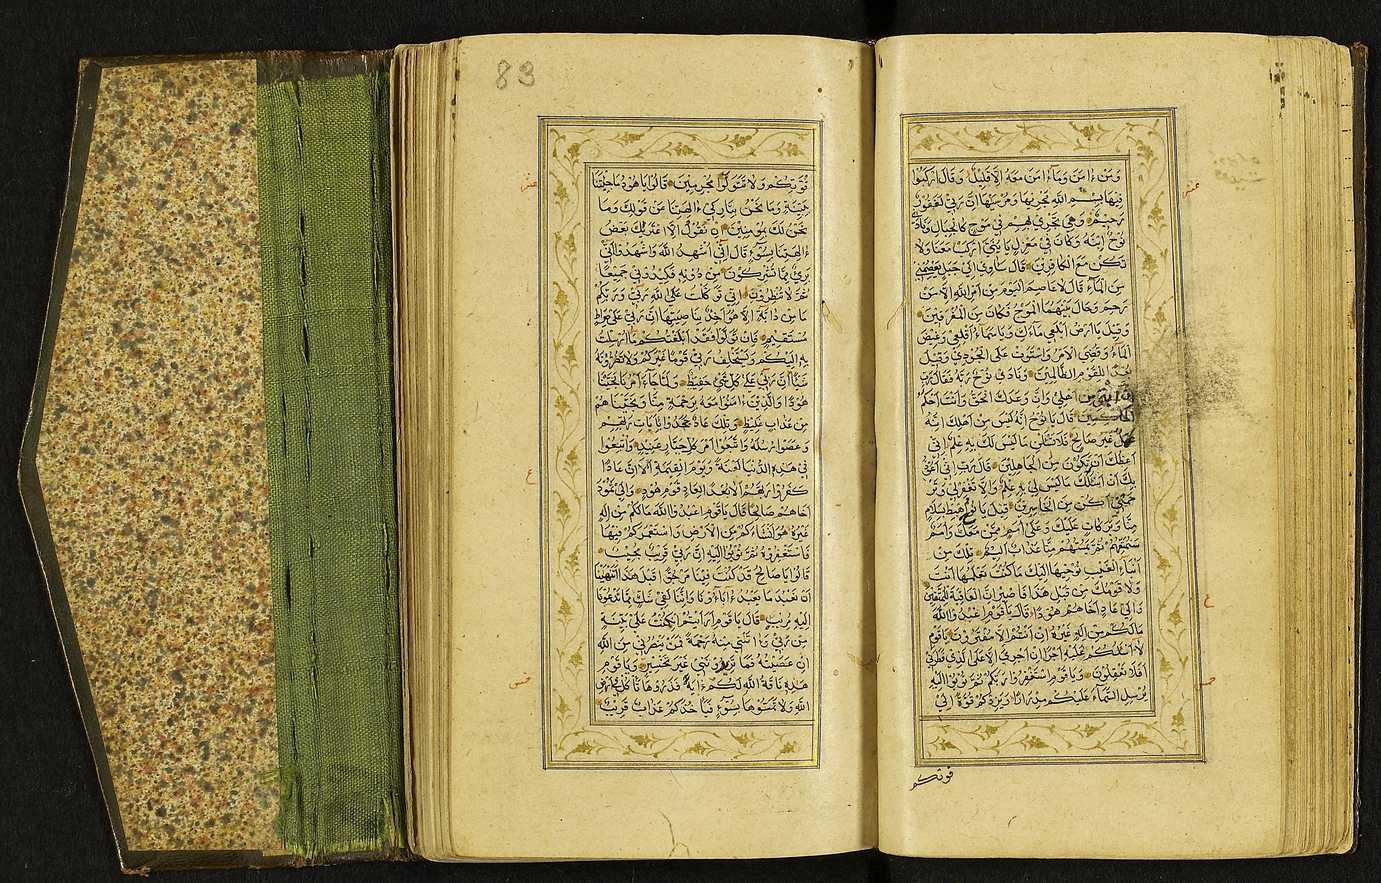 ومن ءامن وماء امن معه الا قليل وقال اركبوا
فيها بسم الله مجريها ومرسيها ان ربي لغفور
رحيم وهي تجري بهم في موج كالجبال ونادى
نوح ابنه وكان في معزل يا بني اركب معنا ولا
تكن مع الكافرين قال ساوي الى جبل يعصمني
من الماء قال لا عاصم اليوم من امر الله الا من
رحم وحال بينهما الموج فكان من المغرقين
وقيل يا ارض ابلعي ماءك ويا سماء اقلعي وغيض
الماء وقضي الامر واستوت على الجودي وقيل
بعدا للقوم الظالمين ونادى نوح ربه فقال رب
ان ابني من اهلي وان وعدك الحق وانت احكم
الحاكمين قال يا نوح انه ليس من اهلك انه
عمل غير صالح فلا تسئلن ما ليس لك به علم اني
اعظك ان تكون من الجاهلين قال رب اني اعوذ
بك ان اسئلك ما ليس لي به علم والا تغفر لي وتر
حمني اكن من الخاسرين قيل يا نوح اهبط بسلام
منا وبركات عليك وعلى امم ممن معك وامم
سنمتعهم ثم يمسهم منا عذاب اليم تلك من
انباء الغيب نوحيها اليك ما كنت تعلمها انت
ولا قومك من قبل هذا فاصبر ان العاقبة للمتقين
والى عاد اخاهم هودا قال يا قوم اعبدوا الله
مالكم من اله غيره ان انتم الا مفترون يا قوم
لا اسئلكم عليه اجرا ان اجري الا على الذي فطرني
افلا تعقلون ويا قوم استغفروا ربكم ثم توبوا اليه
يرسل السماء عليكم مدرارا ويزدكم قوة الى
قوتكم
83
قوتكم ولا تتولوا مجرمين قالوا يا هود ما جئتنا
ببينة وما نحن بتاركي ءالهتنا عن قولك وما
نحن لك بمومنين ان نقول الا اعتريك بعض
ءالهتنا بسوء قال اني اشهد الله واشهدوا اني
بريء مما تشركون من دونه فكيدوني جميعا
ثم لا تنظرون اني توكلت على الله ربي وربكم
ما من دابة الا هو اخذ بناصيتها ان ربي على صراط
مستقيم فان تولوا فقد ابلغتكم ما ارسلت
به اليكم ويستخلف ربي قوما غيركم ولا تضرونه
شيئا ان ربي على كل شيء حفيظ ولما جاء امرنا نجينا
هودا والذين ءامنوا معه برحمة منا ونجيناهم
من عذاب غليظ وتلك عاد جحدوا بايات ربهم
وعصوا رسله واتبعوا امر كل جبار عنيد واتبعوا
في هذه الدنيا لعنة ويوم القيمة الا ان عادا
كفروا ربهم الا بعدا لعاد قوم هود والى ثمود
اخاهم صالحا قال يا قوم اعبدوا الله مالكم من اله
غيره هو انشاكم من الارض واستعمركم فيها
فاستغفروه ثم توبوا اليه ان ربي قريب مجيب
قالوا يا صالح قد كنت فينا مرجوا قبل هذا اتنهينا
ان نعبد ما يعبد ءاباؤنا واننا لفي شك مما تدعونا
اليه مريب قال يا قوم ارايتم ان كنت على بينة
من ربي واتاني منه رحمة فمن ينصرني من الله
ان عصيته فما تزيدونني غير تخسير ويا قوم
هذه ناقة الله لكم ءاية فذروها تاكل في ارض
الله ولا تمسوها بسوء فياخذكم عذاب قريب